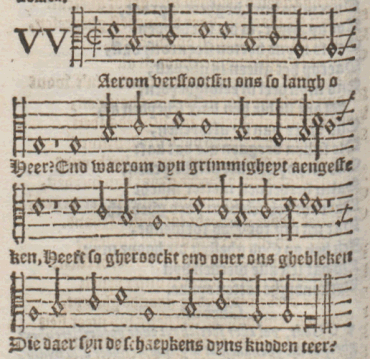 VV
Aerom verstootstu ons so langh o
Heer? End waerom dyn grimmigheyt aengeste
ken, Heeft so gheroockt end ouer ons ghebleken
Die daer syn de schaepkens dyns kudden teer?